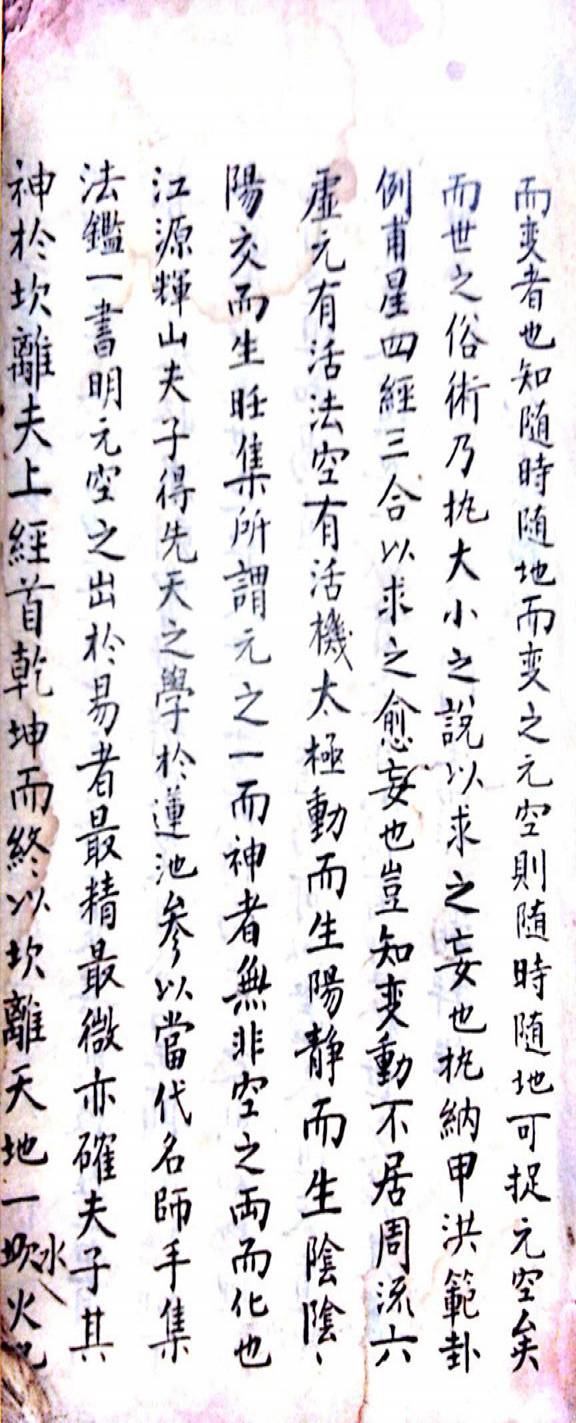 而变者也知随時随地而变之元空則随時随地可捉元空矣
而世之俗術乃执大小之說以求之妄也执納甲洪範卦
例甫星四經三合以求之愈妄也豈知变動不居周流六
虛元有活法空有活機太極動而生陽静而生陰陰丶
陽交而生眶集所謂元之一而神者無非空之両而化也
江源輝山夫子得先天之學於蓮池参以當代名師手集
法鑑一書明元空之出於易者最精最微亦確夫子其
神於坎離夫上經首乾坤而終以坎離天地一坎水火